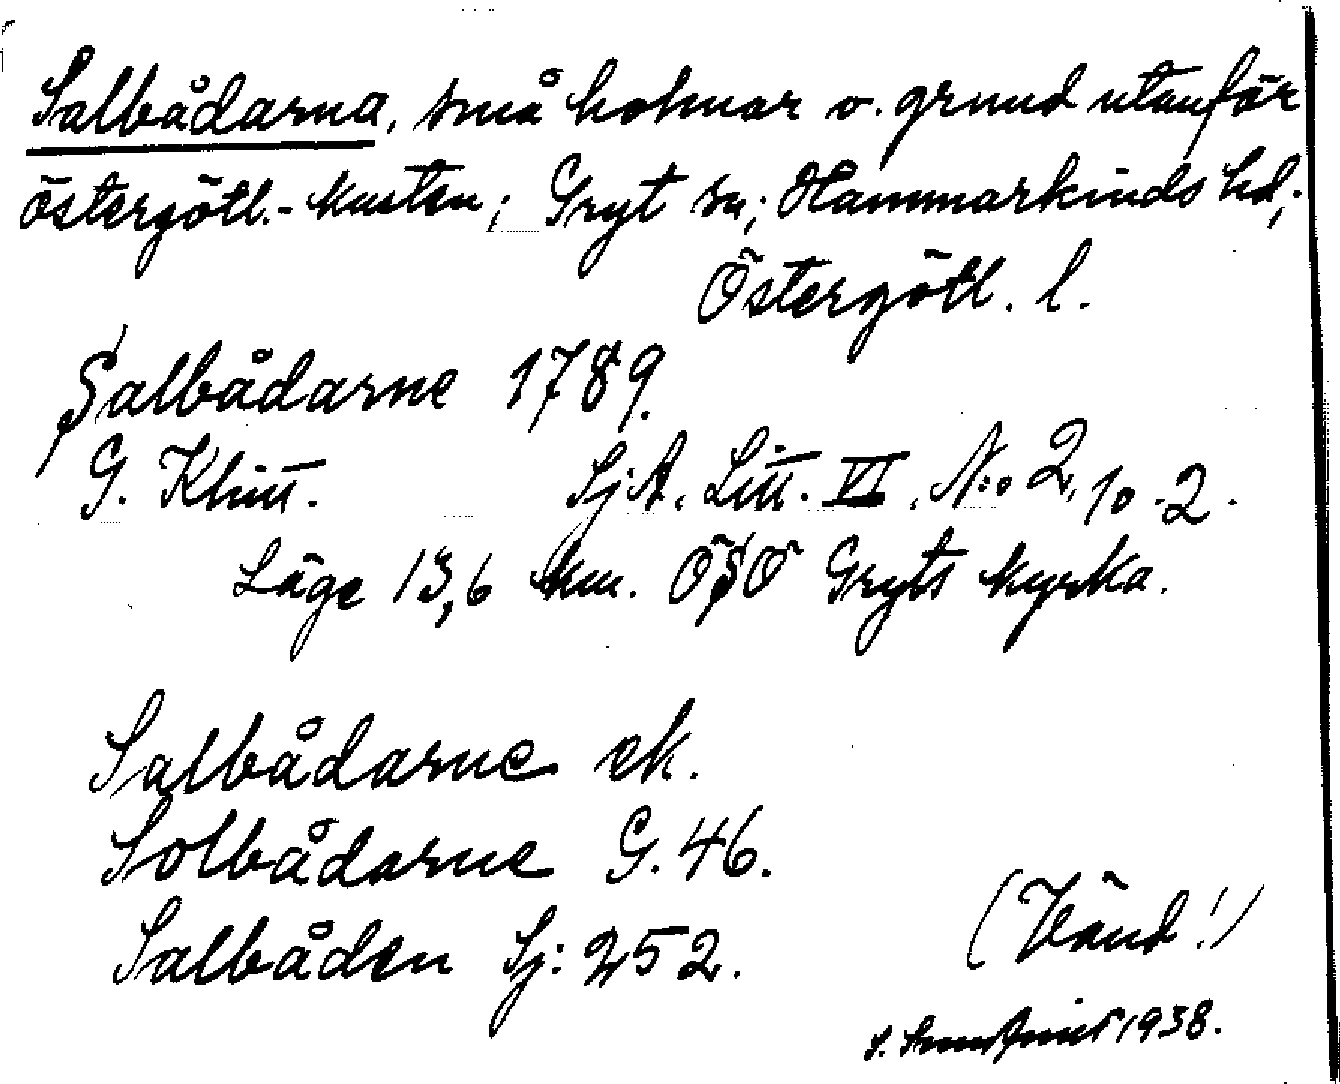 Salbådarna, små holmar o. grund utanför
östergötl.-kusten; Gryt sn; Hammarkinds hd,
Östergötl. l.
Salbådarne 1789.
G. Klint. Sj.A. Litt. VI. N:o 2, 10-2.
Läge 13,6 km. ÖSÖ Gryts kyrka.
Salbådarne ek.
Solbådarne G. 46.
Salbåden Sj: 252.
(Vänd!)
S. 1938.